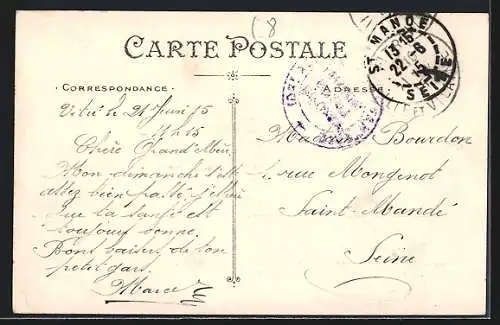 (8
CARTE POSTALE
ST MANDE
13 15
22-6
15
SEINE
CORRESPONDANCE
ADRESSE
Vitré le 21 Juin 15
Chère Grand'Mère
Mon dimanche s'est
assez bien passé,
que la santé est
toujours bonne.
Bons baisers de ton
petit gars.
Marcel
Madame Bourdon
1. rue Mongenot
Saint-Mandé
Seine